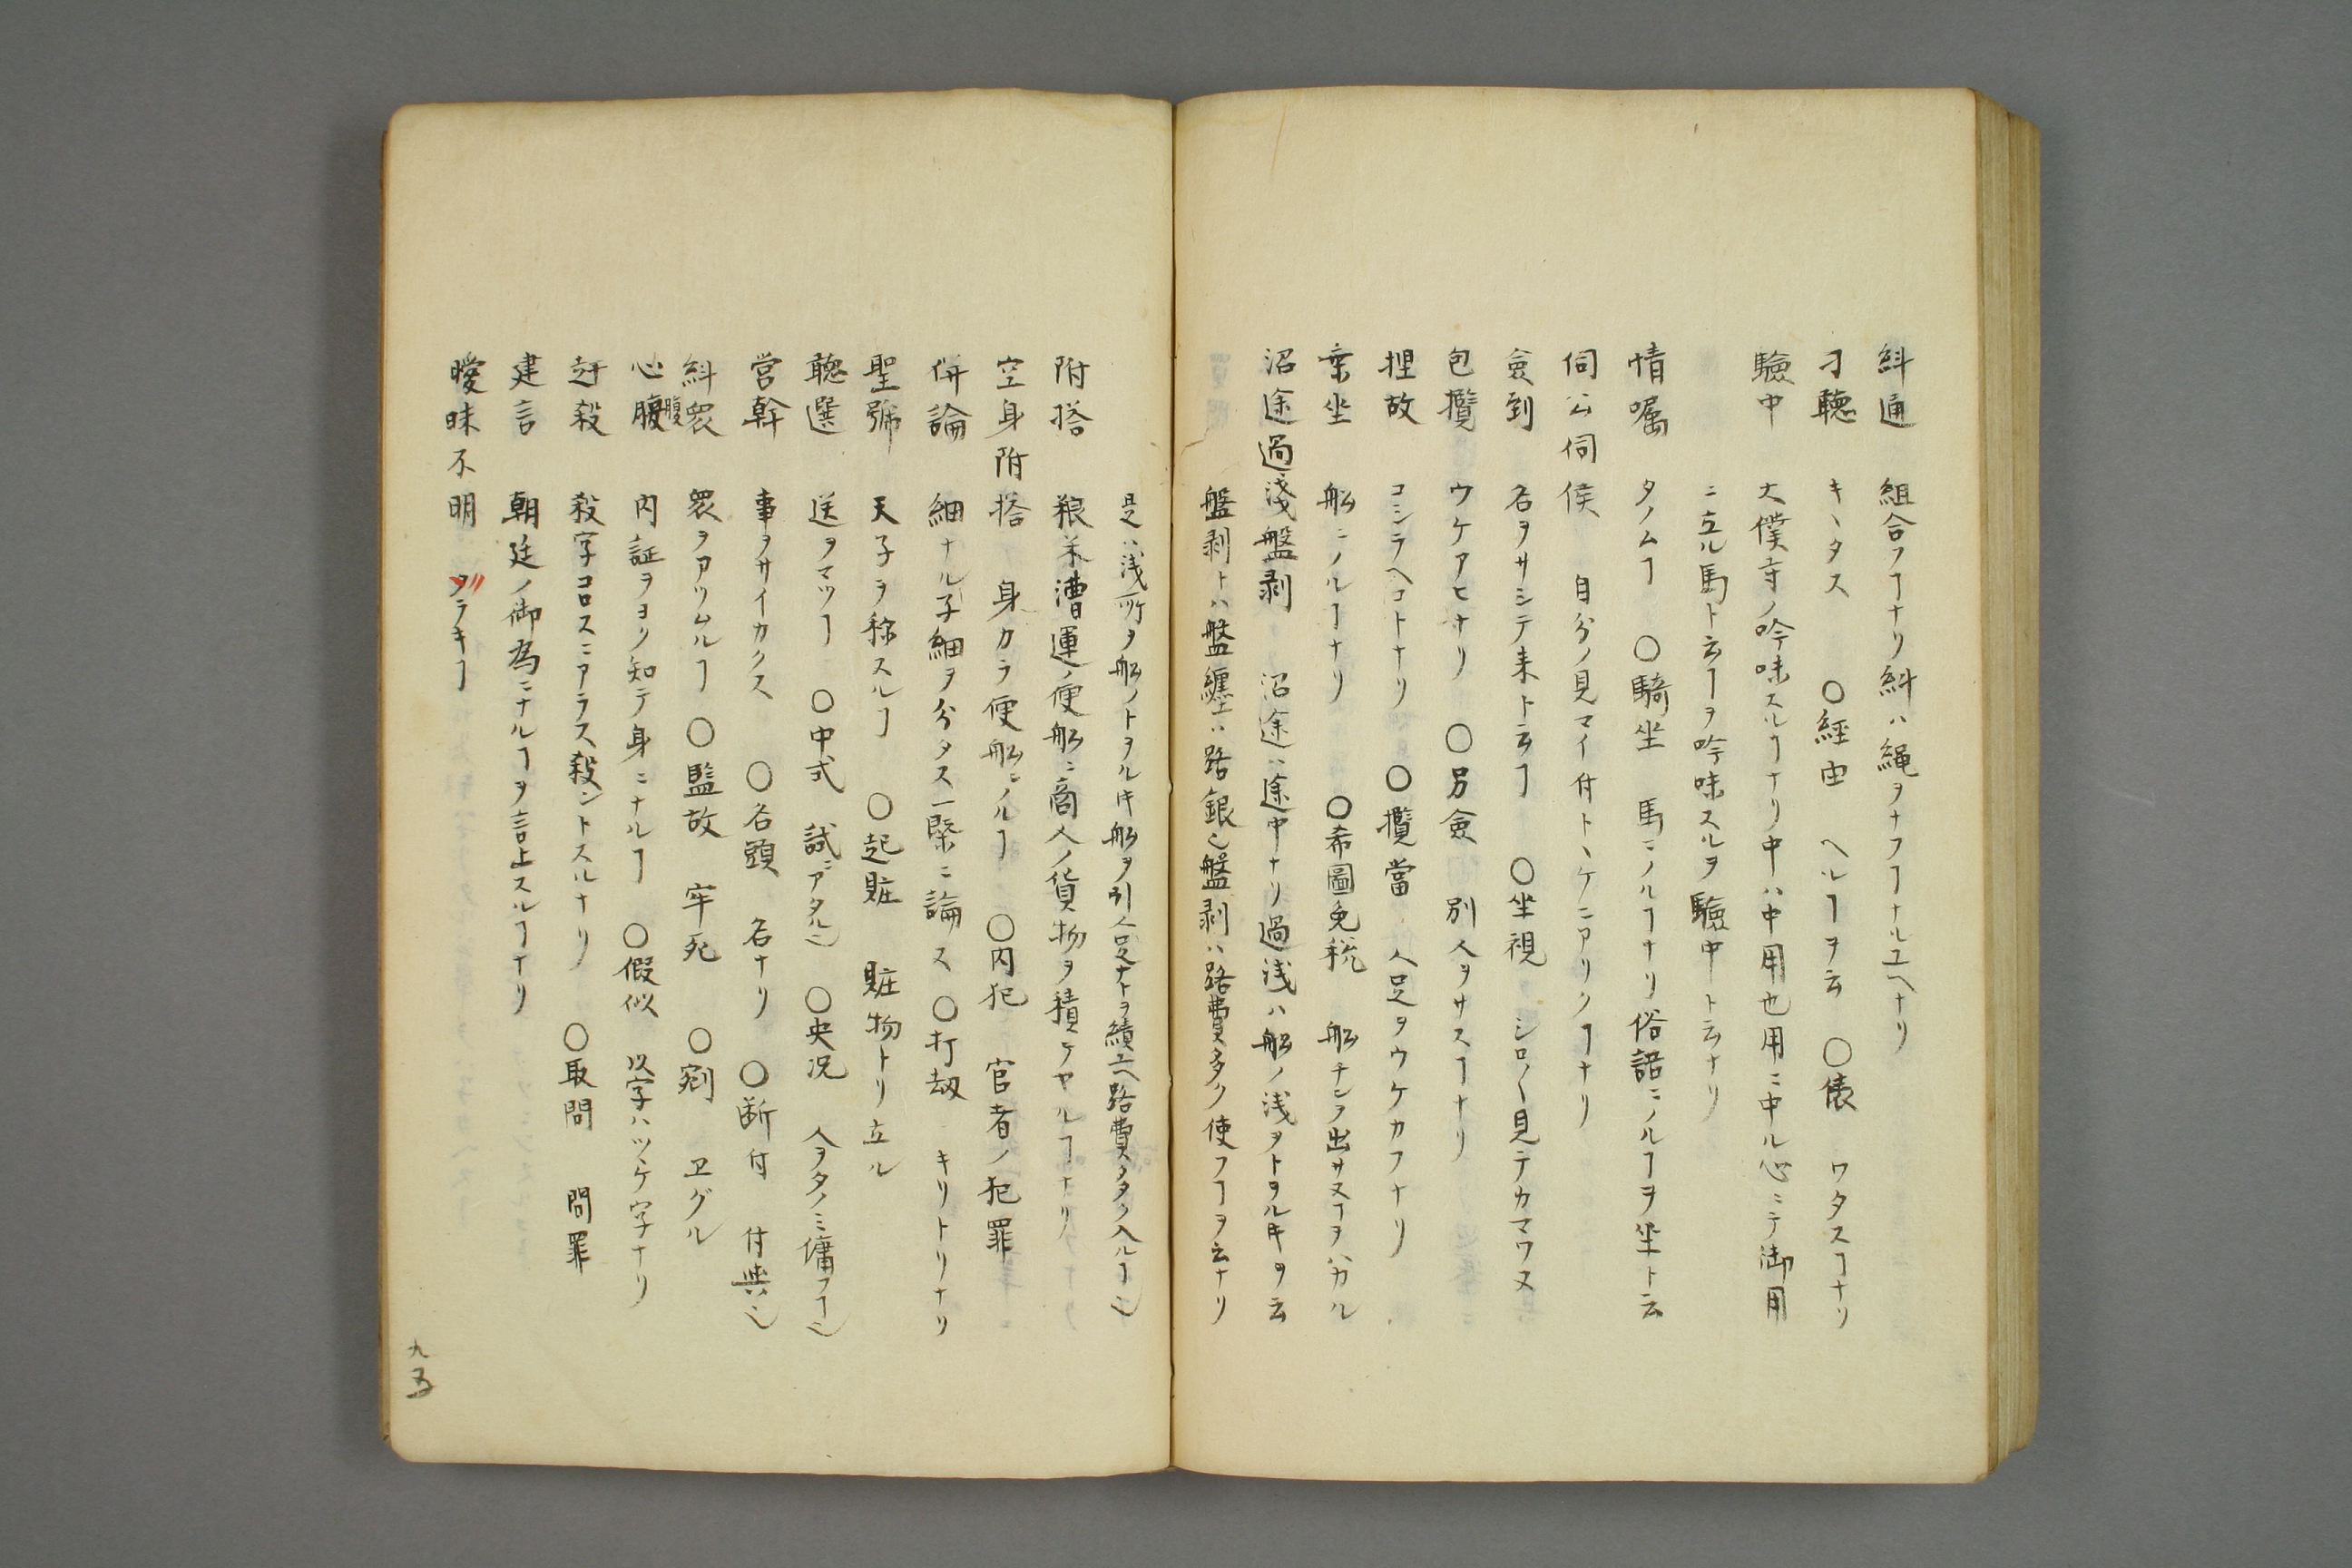 糾通　組合フヿナリ糾ハ繩ヲナフヿナルユヘナリ
刁聽　キヽタス　〇經由　ヘルヿヲ云　〇俵　ワタスヿナリ
驗中　大僕寺ノ吟味スルヿナリ中ハ中用也用ニ中ル心ニテ御用
ニ立ル馬ト云ヿヲ吟味スルヲ驗中ト云ナリ
情囑　タノムヿ　〇騎坐　馬ニノルヿナリ俗語ニノルヿヲ坐ト云
伺公伺侯　自分ノ見マイ付トヽケニアリクヿナリ
僉到　名ヲサシテ来ト云ヿ　〇坐視　シロ〳〵見テカマワヌ
包攬　ウケアヒナリ　〇另僉　別人ヲサスヿナリ
捏故　コシラヘコトナリ　〇攬當　人足ヲウケカフナリ
乗坐　船ニノルヿナリ　〇希圖免税　船チンヲ出サヌヿヲハカル
沿途過淺盤剥　沿途ハ途中ナリ過浅ハ船ノ浅ヲトヲルキヲ云
盤剥トハ盤纏ハ路銀也盤剥ハ路費多ク使フヿヲ云ナリ
是ハ浅所ヲ船ノトヲルキ船ヲ引人足ナトヲ績ユヘ路費メタク入ルヿ也
附搭　粮米漕運ノ便船ニ商人ノ貨物ヲ積テヤルヿナリ
空身附搭　身カラ便船ニノルヿ　〇内犯　官者ノ犯罪
併論　細ナル子細ヲ分タス一槩ニ論ス　〇打刼　キリトリナリ
聖號　天子ヲ称スルヿ　〇起賍　賍物トリ立ル
聽選　送ヲマツヿ　〇中式　試ニアタル也　〇央况　人ヲタノミ傭フヿ也
営幹　事ヲサイカクス　〇名頭　名ナリ　〇断付　付與也
糾衆　衆ヲアツムルヿ　〇監故　牢死　〇剜　ヱグル
心腹腹　内証ヲヨク知テ身ニナルヿ　〇假似　以字ハツヽケ字ナリ
赶殺　殺字コロスニアラス殺ントスルナリ　〇取問　問罪
建言　朝廷ノ御為ニナルヿヲ言上スルヿナリ
曖昧不明　ダラキヿ
九五